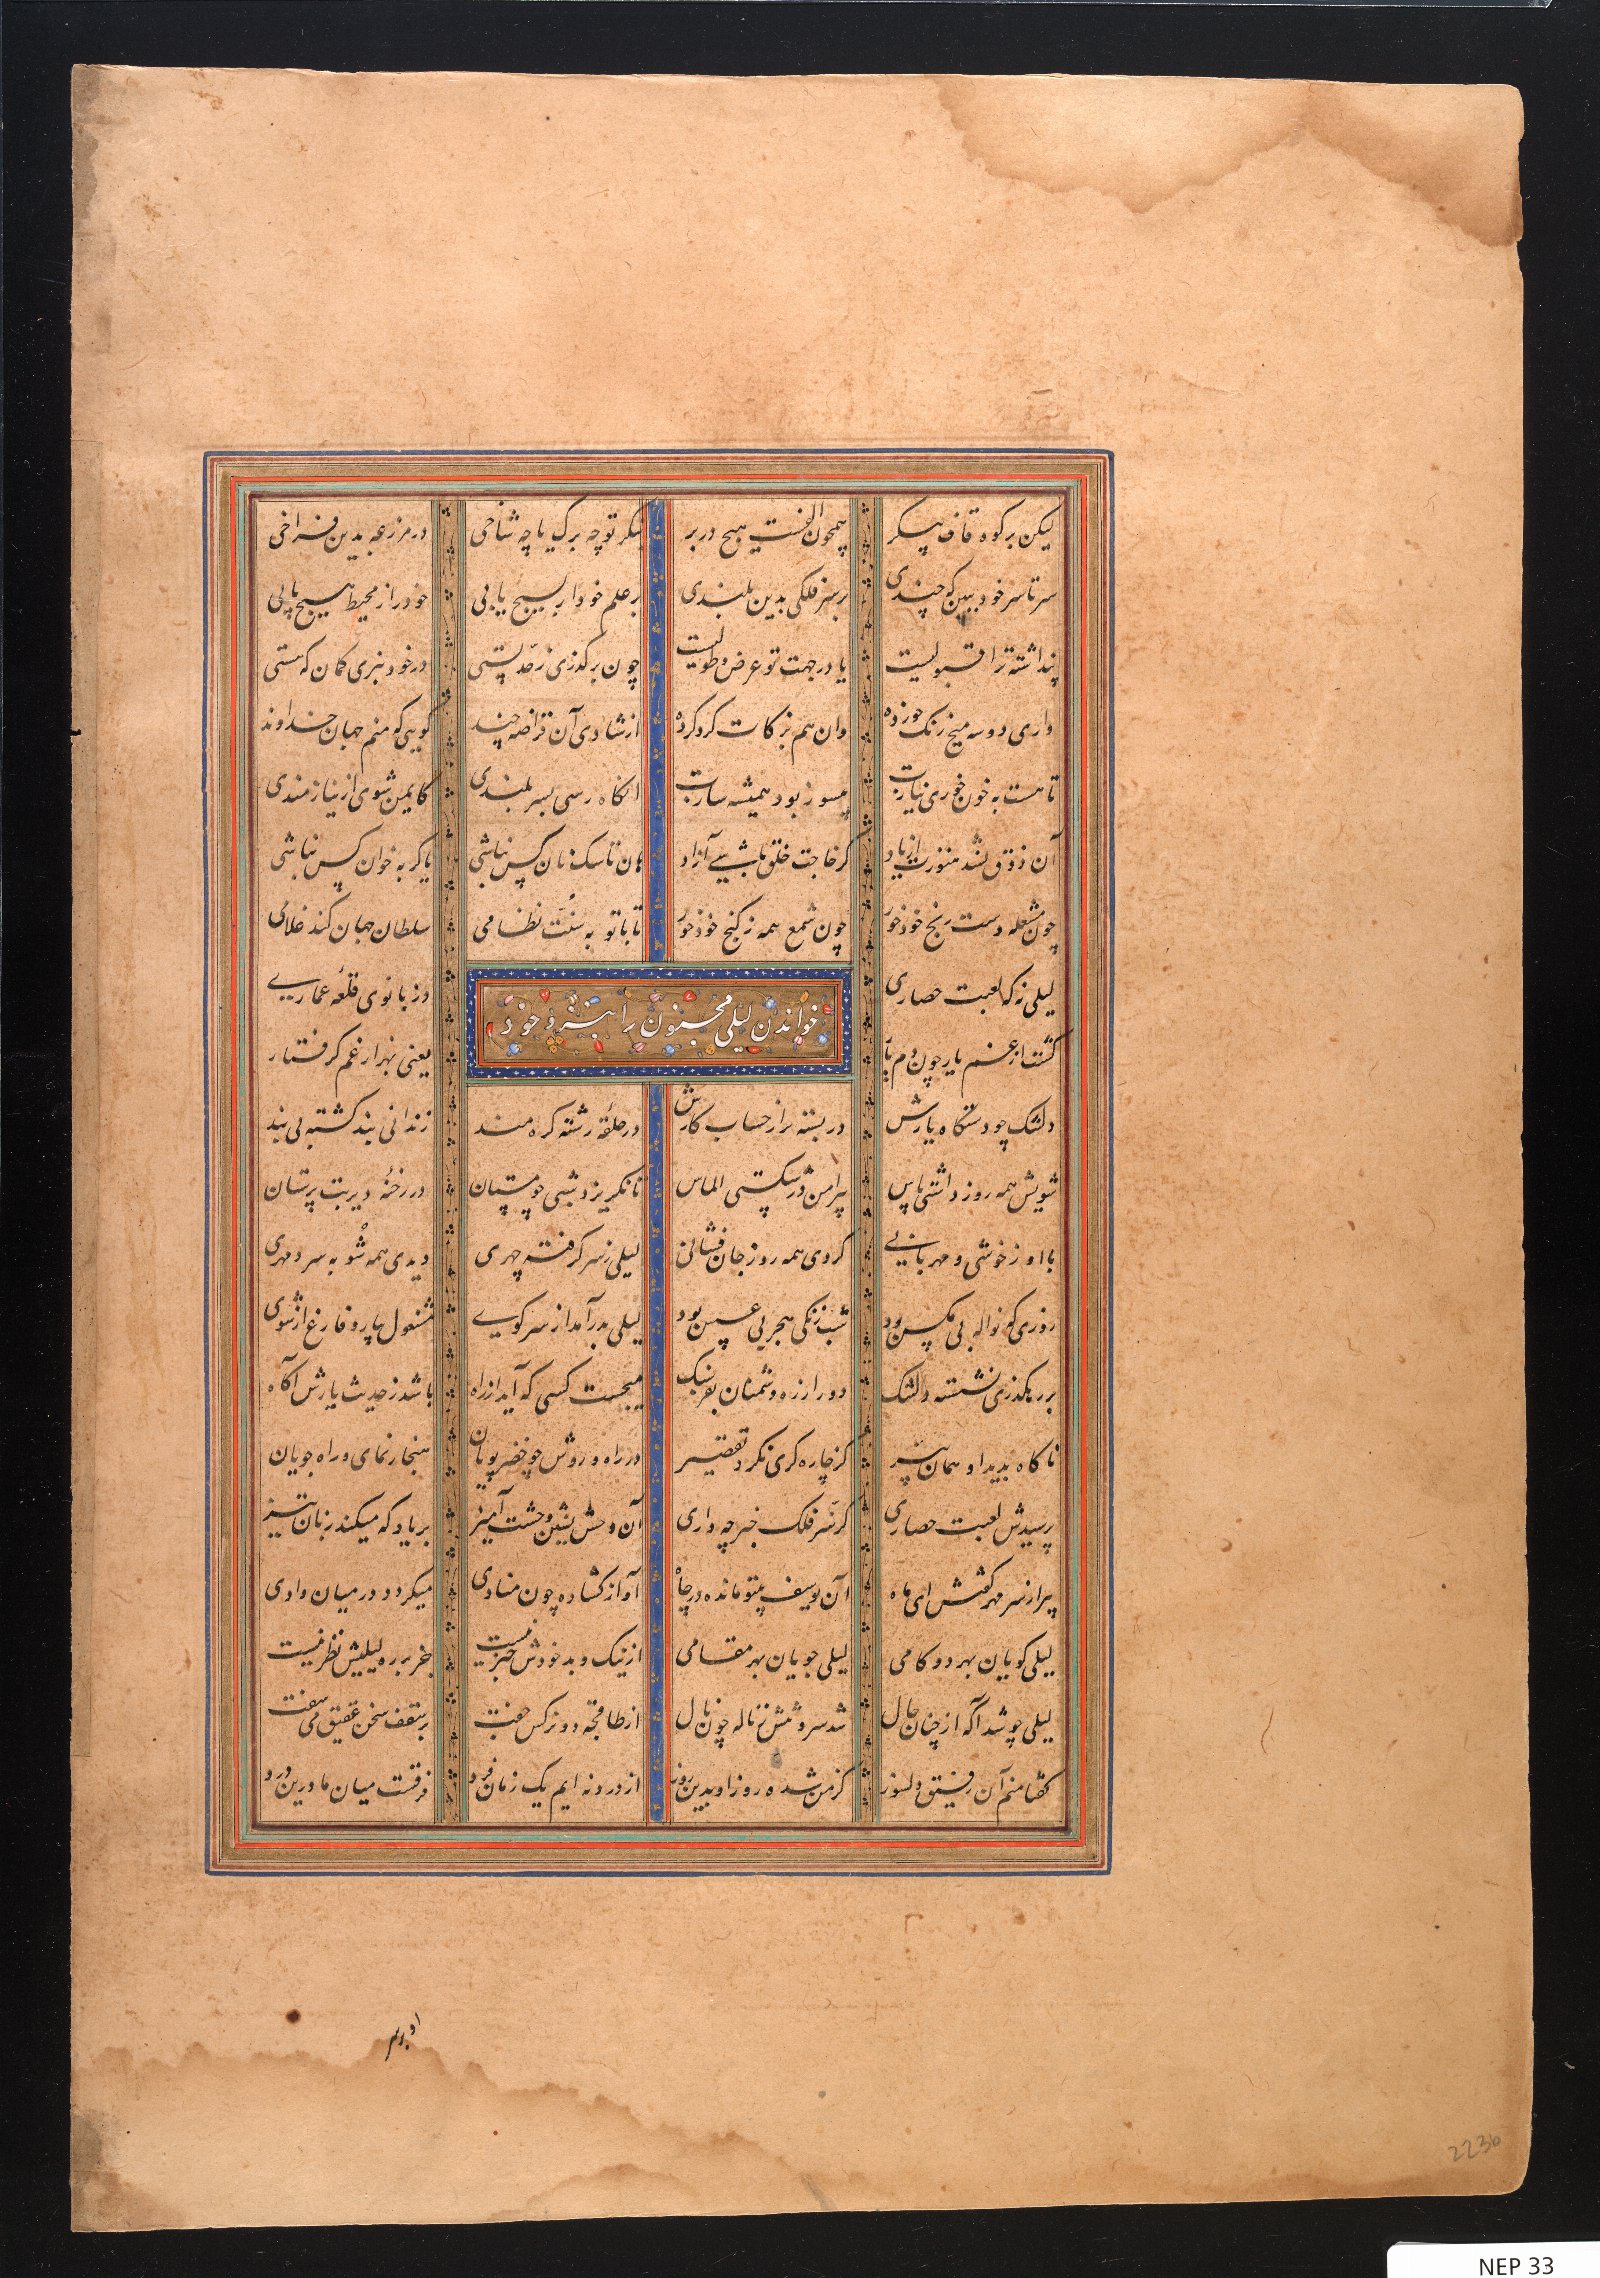 لیکن بر کوه قاف پیکر همچون الفیست هیچ در بر بنگر تو چه برگ یا چه شاخی در مزرعه بدین فراخی
سر تا سر خود ببین که چندی بر سر فلکی بدین بلندی بر علم خود ار بسیج یابی خود را ز محیط هیچ یابی
پنداشته ترا قبولیست یا در جهت تو عرض و طولیست چون بر گذری ز حد پستی در خود نبری گمان که هستی
داری دو سه میخ زنگ خورده وان هم بزکات گرد کرده از شادی آن قراضه چند گویی که منم جهان خداوند
تا هست به خون خوری نیازت میسوز بود همیشه سازت آنگاه رسی بسر بلندی کایمن شوی از نیازمندی
آن ذوق نشد هنوزت از یاد کز حاجت خلق باشی آزاد هان تا سگ نان کس نباشی یا گربه خوان کس نباشی
چون مشعله دست رنج خود خور چون شمع همه ز گنج خود خور تا با تو به سنت نظامی سلطان جهان کند غلامی
خواندن لیلی مجنون را بنزد خود
لیلی نه که لعبت حصاری دز بانوی قلعهٔ عماری
گشت از غم یار چون دم یار یعنی بهزار غم گرفتار
دلتنگ چو دستگاه یارش در بسته تر از حساب کارش در حلقهٔ رشته گره مند زندانی بند گشته بی بند
شویش همه روز داشتی پاس پیرامن در شکستی الماس تا نگریزد شبی چو مستان در رخنهٔ دیر بت پرستان
با او ز خوشی و مهربانی کردی همه روز جان فشانی لیلی ز سر گرفته چهری دیدی همه شو به سرد مهری
روزی که نواله بی مگس بود شب زنگی هجر بی عسس بود لیلی بدر آمد از سر کوی مشغول بیار و فارغ از شوی
بر رهگذری نشسته دلتنگ دور از ره دشمنان بفرسنگ میجست کسی که آید از راه باشد ز حدیث یارش آگاه
ناگاه پدید او همان پیر کز چاره گری نکرد تقصیر در راه و روش چو خضر پویان هنجار نمای و راه جویان
پرسیدش لعبت حصاری کز سر فلک خبر چه داری آن وحش نشین وحشت آمیز بر یاد که میکند زبان تیز
پیر از سر مهر گفتش ای ماه آن یوسف بیتو مانده در چاه آواز گشاده چون منادی میگردد در میان وادی
لیلی گویان بهر دو گامی لیلی جویان بهر مقامی از نیک و بد خودش خبر نیست جز بر ره لیلیش نظر نیست
لیلی چو شد آگه از چنان حال شد سرو تنش ز ناله چون نال از طاقچه دو نرگس جفت بر سقف سخن عقیق می سفت
گفتا منم آن رفیق دلسوز کز من شده روز او بدین روز از درد نه ایم یک زمان فرد فرقست میان ما درین درد
او بر سر
223b
NEP 33